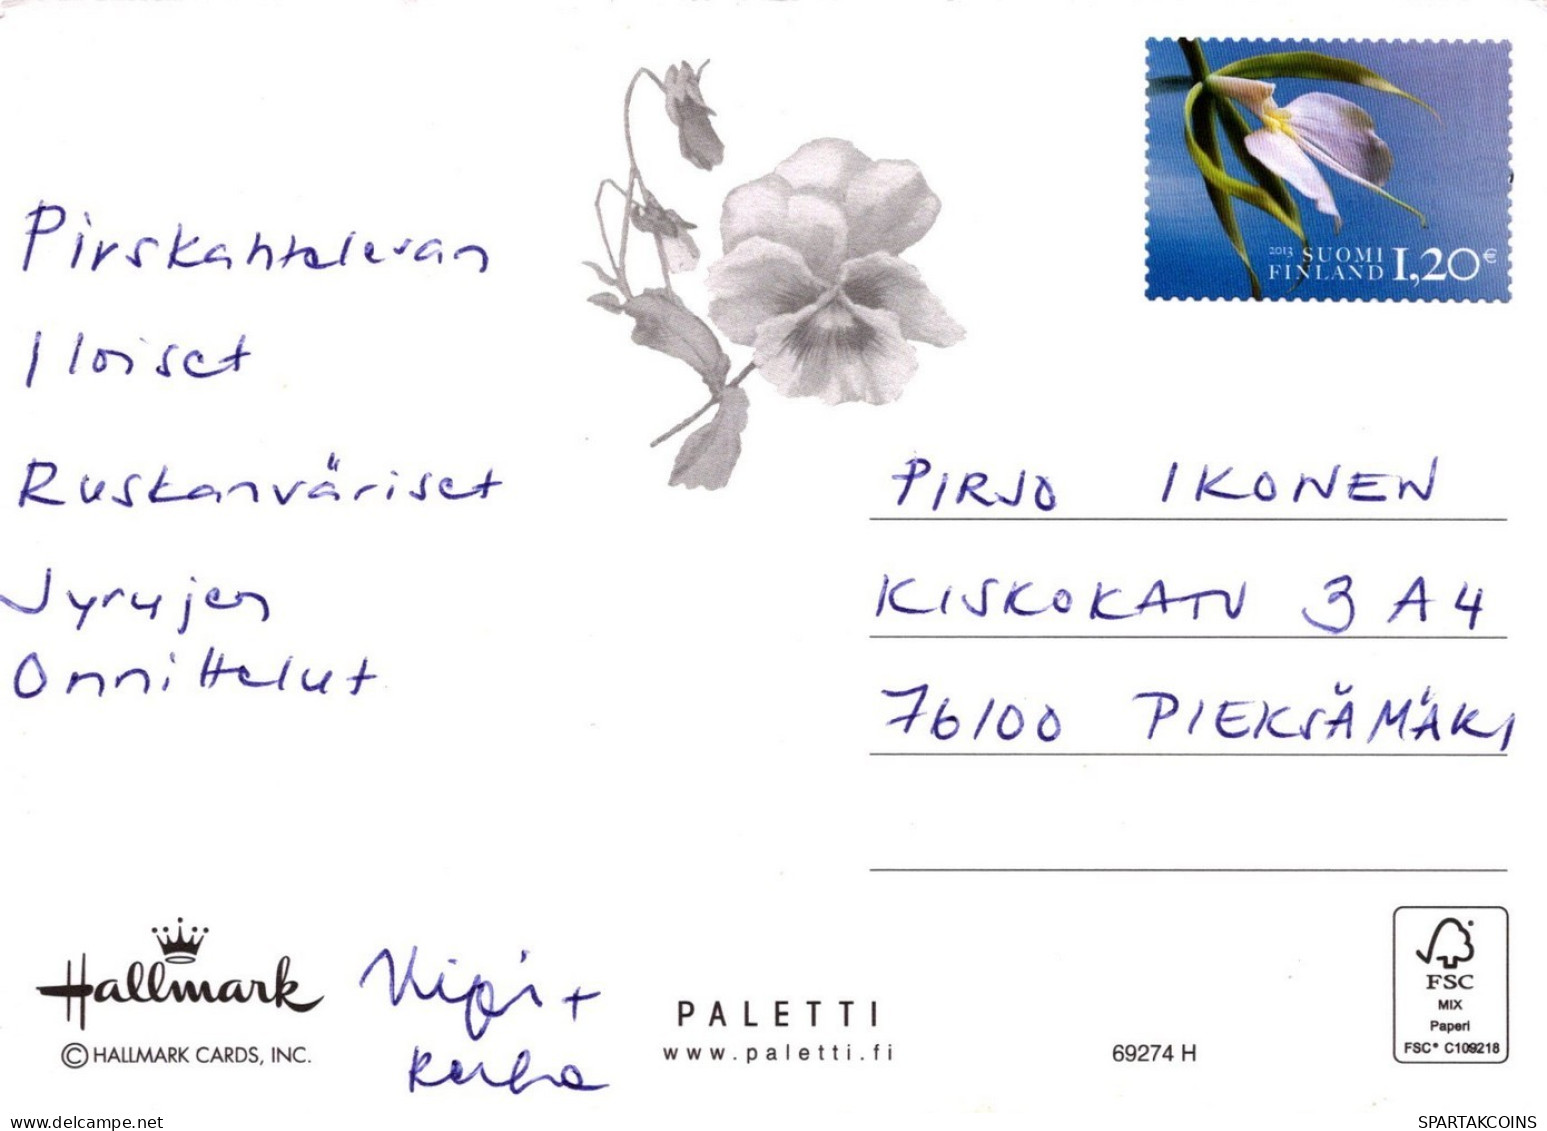 Pirskahtelevan
Iloiset
Ruskanväriset
Jyryjen
Onnittelut
2013 SUOMI
FINLAND 1,20€
PIRJO IKONEN
KISKOKATU 3 A 4
76100 PIEKSÄMÄKI
Hallmark
© HALLMARK CARDS, INC.
+
PALETTI
www.paletti.fi
69274 H
FSC
MIX
Paperi
FSC® C109218
SPARTAKCOINS